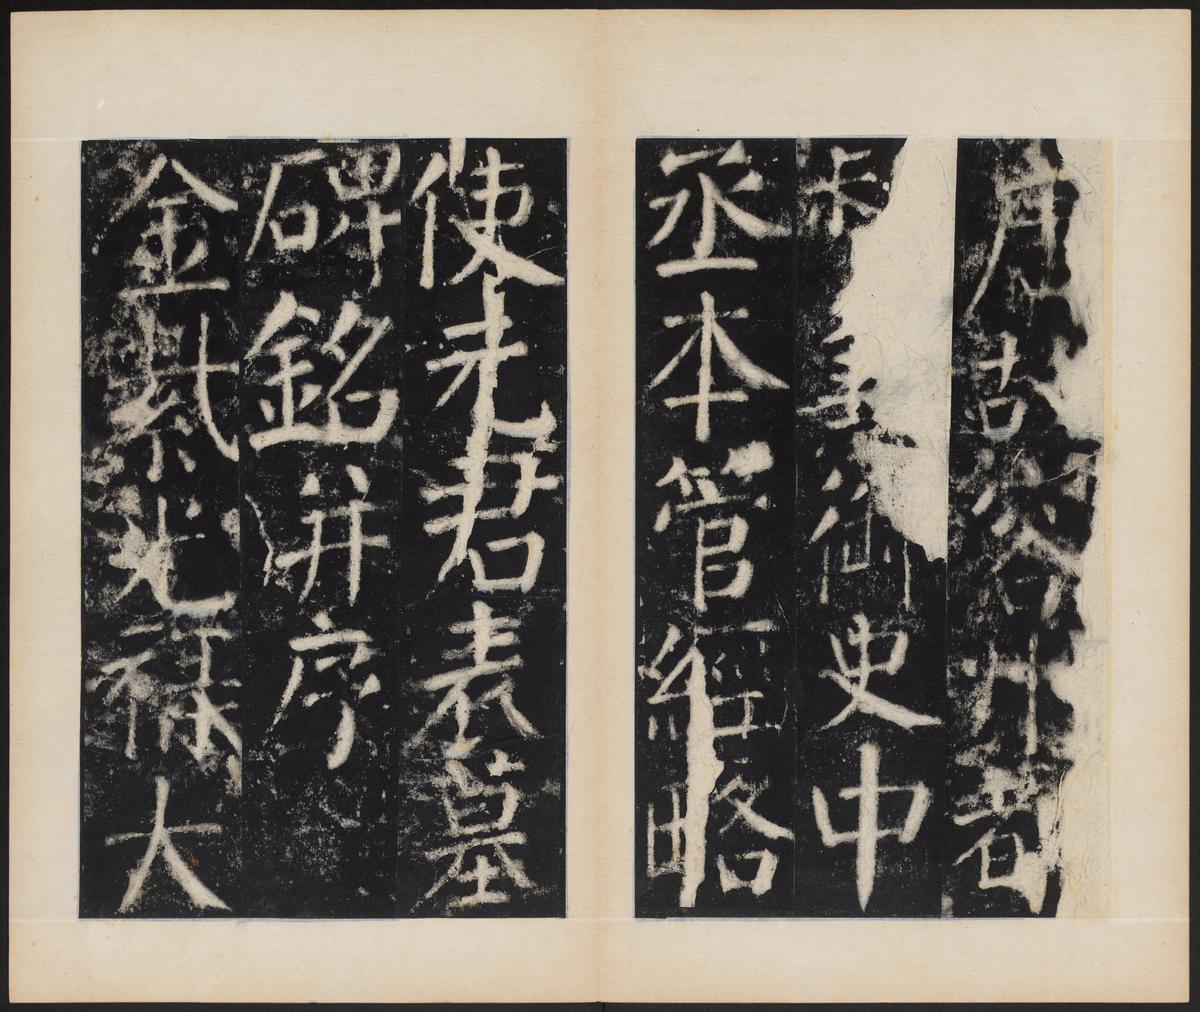 唐故容州都
督兼御史中
丞本管經略
使元君表墓
碑銘并序
金紫光祿大